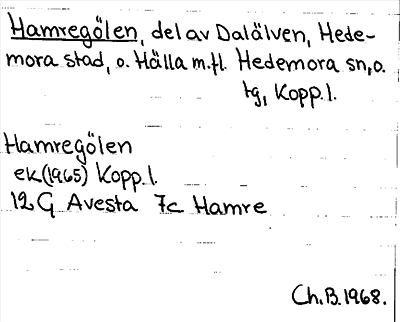 Hamregölen, del av Dalälven, Hede-
mora stad, o. Hälla m.fl. Hedemora sn, o.
tg, Kopp. l.
Hamregölen
ek (1965) Kopp. l.
12 G Avesta 7c Hamre
Ch. B. 1968.